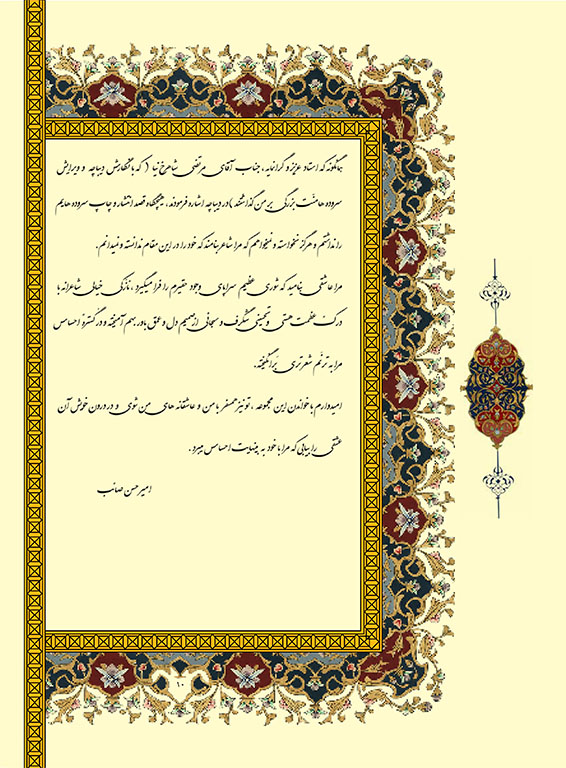 همانگونه که استاد عزیز و گرانمایه ، جناب آقای مرتضی شاهرخ نیا ( که با نگارش دیباچه و ویرایش
سروده ها منّت بزرگی بر من گذاشتند ) در دیباچه اشاره فرمودند ، هیچگاه قصد انتشار و چاپ سروده هایم
را نداشتم و هرگز نخواسته و نمیخواهم که مرا شاعر بنامند که خود را در این مقام ندانسته و نمیدانم .
مرا عاشقی بنامید که شوری عظیم سراپای وجود حقیرم را فرا میگیرد ، نازکی خیالی شاعرانه با
درک عظمت هستی و تحسینی شگرف و سبحانی از صمیم دل و عمق باور بهم آمیخته و در گسترهٔ احساس
مرا به ترنّم شعرتری برانگیخته .
امیدوارم با خواندن این مجموعه ، تو نیز همسفر با من و عاشقانه های من شوی و در درون خویش آن
عشقی را بیابی که مرا با خود به بینهایت احساس میبرد .
امیر حسن صائب